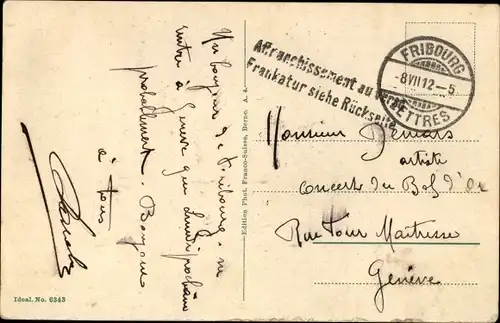 Un bonjour de Fribourg. ne
rentre à Genève que lundi prochain
probablement. Bonjour
à tous
Edition Phot. Franco-Suisse, Berne. A. A.
Affranchissement au verso
Frankatur siehe Rückseite
FRIBOURG
-8VII12-5
LETTRES
Monsieur Demars
artiste
Concerts du Bol d'Or
Rue Tour Maîtresse
Genève
Ideal. No. 6343